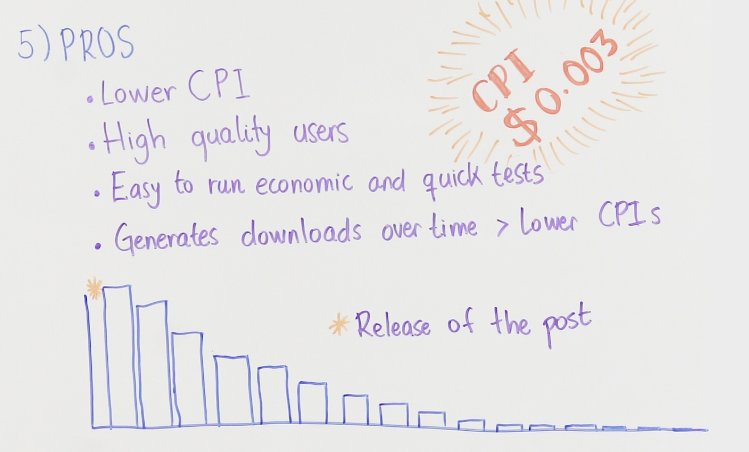 5) PROS
CPI
$0.003
• Lower CPI
• High quality users
• Easy to run economic and quick tests
• Generates downloads over time > lower CPIs
* Release of the post